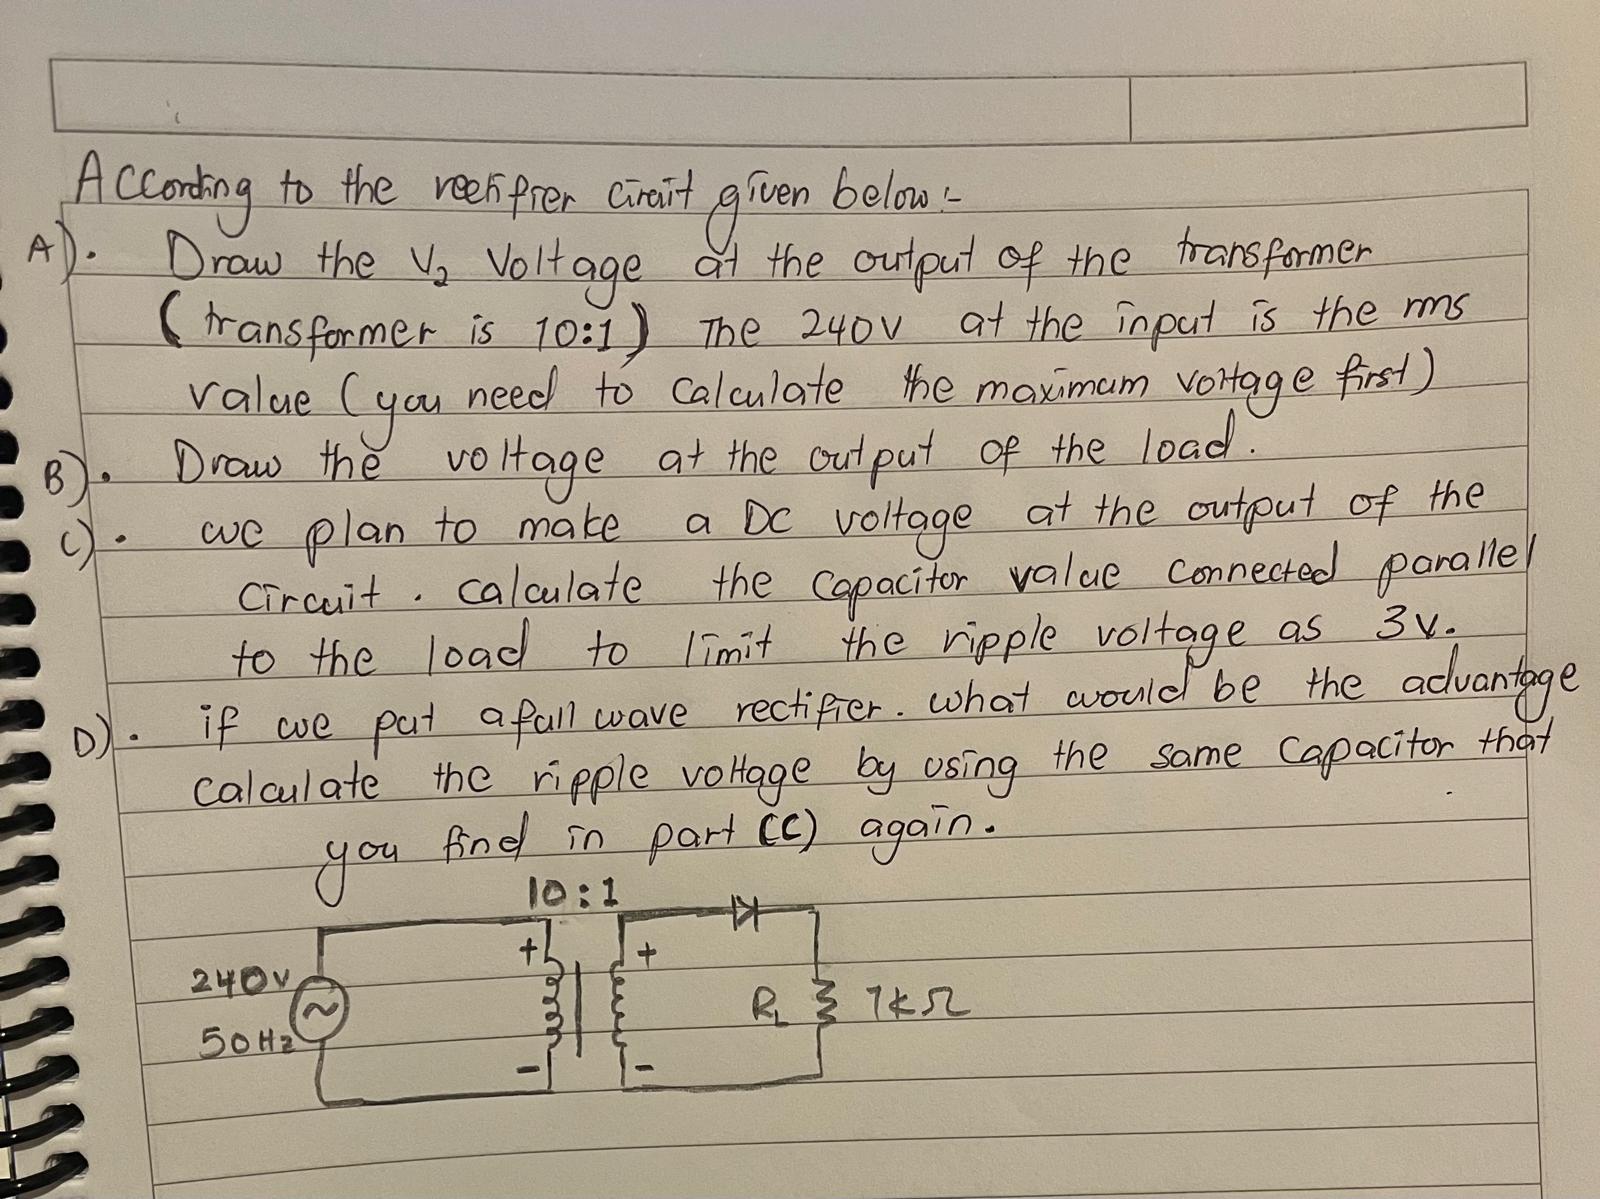 According to the rectifier circuit given below :-
A). Draw the V2 Voltage at the output of the transformer
(transformer is 10:1) The 240V at the input is the rms
value (you need to calculate the maximum voltage first)
B). Draw the voltage at the output of the load.
C). we plan to make a DC voltage at the output of the
circuit. calculate the capacitor value connected parallel
to the load to limit the ripple voltage as 3v.
D). if we put a full wave rectifier. what would be the advantage
calculate the ripple voltage by using the same capacitor that
you find in part (C) again.
10:1
+ +
240V
RL 7kΩ
50Hz
- -